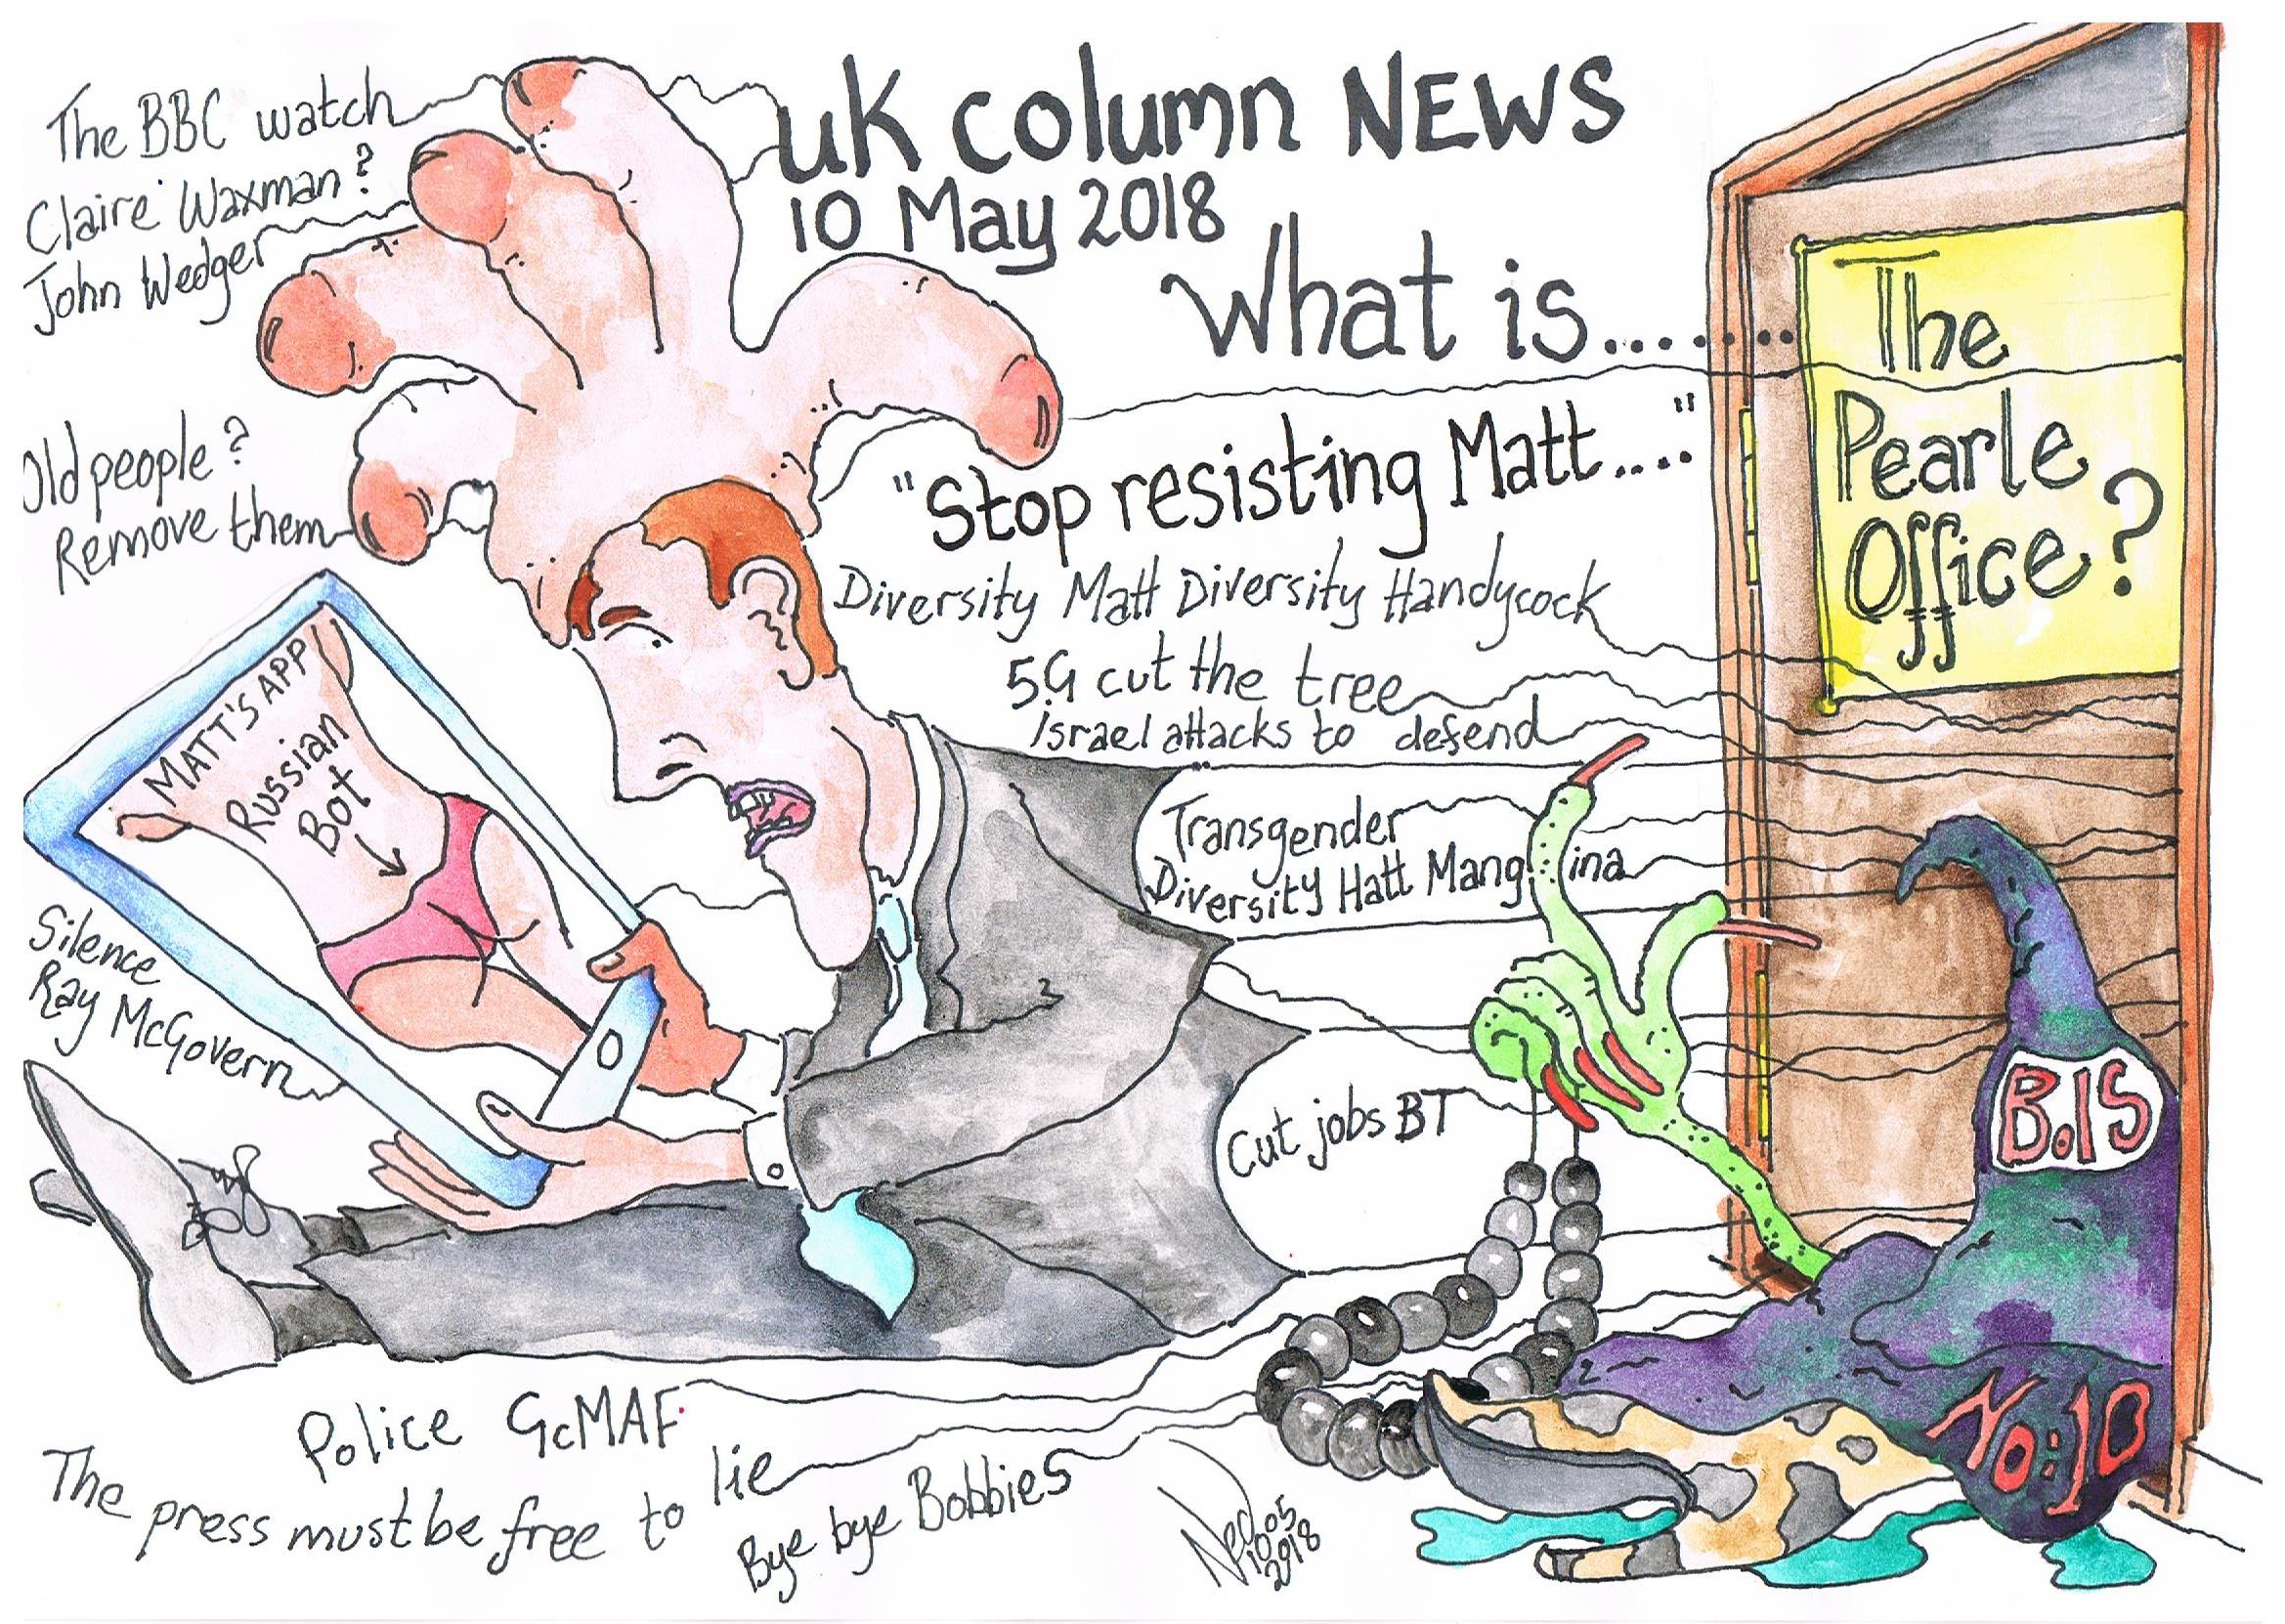 The BBC watch
Claire Waxman?
John Wedger
UK Column NEWS
10 May 2018
What is.......
The
Pearle
Office?
Old people?
Remove them
"Stop resisting Matt...."
Diversity Matt Diversity Handycock
5G cut the tree
israel attacks to defend
MATT'S APP
Russian
Bot
Transgender
Diversity Hatt Mang!ina
Silence
Ray McGovern
Cut jobs BT
B.IS
No:10
Police GcMAF
The press must be free to lie
Bye bye Bobbies
10.05
2018